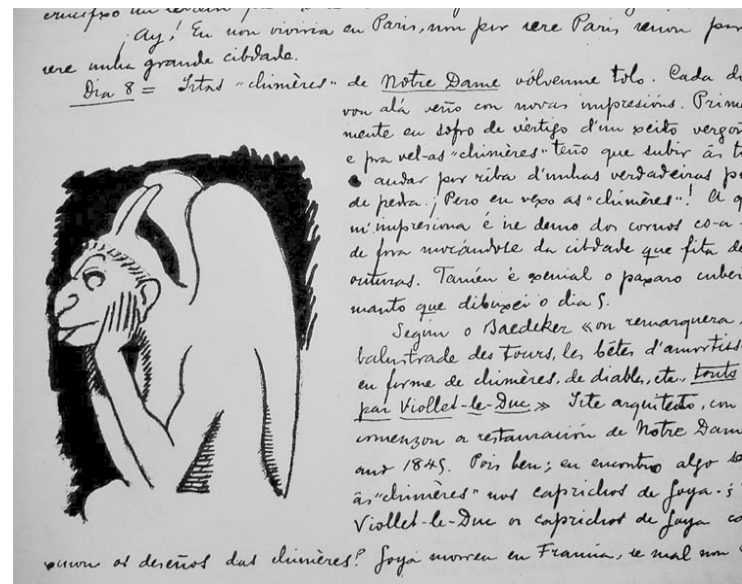 ¡Ay! Eu non viviria en Paris, non por sere Paris senon por
sere unha grande cibdade.
Dia 8 = Istas "chimères" de Notre Dame vólvenme tolo. Cada di
vou alá veño con novas impresións. Prime
mente eu sofro de vértigo d'un xeito vergoñ
e pra vel-as "chimères" teño que subir ás to
e andar por riba d'unhas verdadeiras
de pedra. ¡Pero eu vexo as "chimères"! A q
m'impresiona é ise demo dos cornos co-a
de fora mocándose da cibdade que fita de
outuras. Tamén é xenial o paxaro cuber
manto que dibuxei o dia 5.
Segun o Baedeker «on remarquera,
balustrade des tours, les bêtes d'amortiss
en forme de chimères, de diables, etc., touts
par Viollet-le-Duc» Iste arquiteito, con
comenzou a restauración de Notre Dame
ano 1845. Pois ben; eu encontro algo se
ás "chimères" nos caprichos de Goya. ¿
Viollet-le-Duc os caprichos de Goya co
os deseños das chimères? Goya morreu en Francia, se mal non